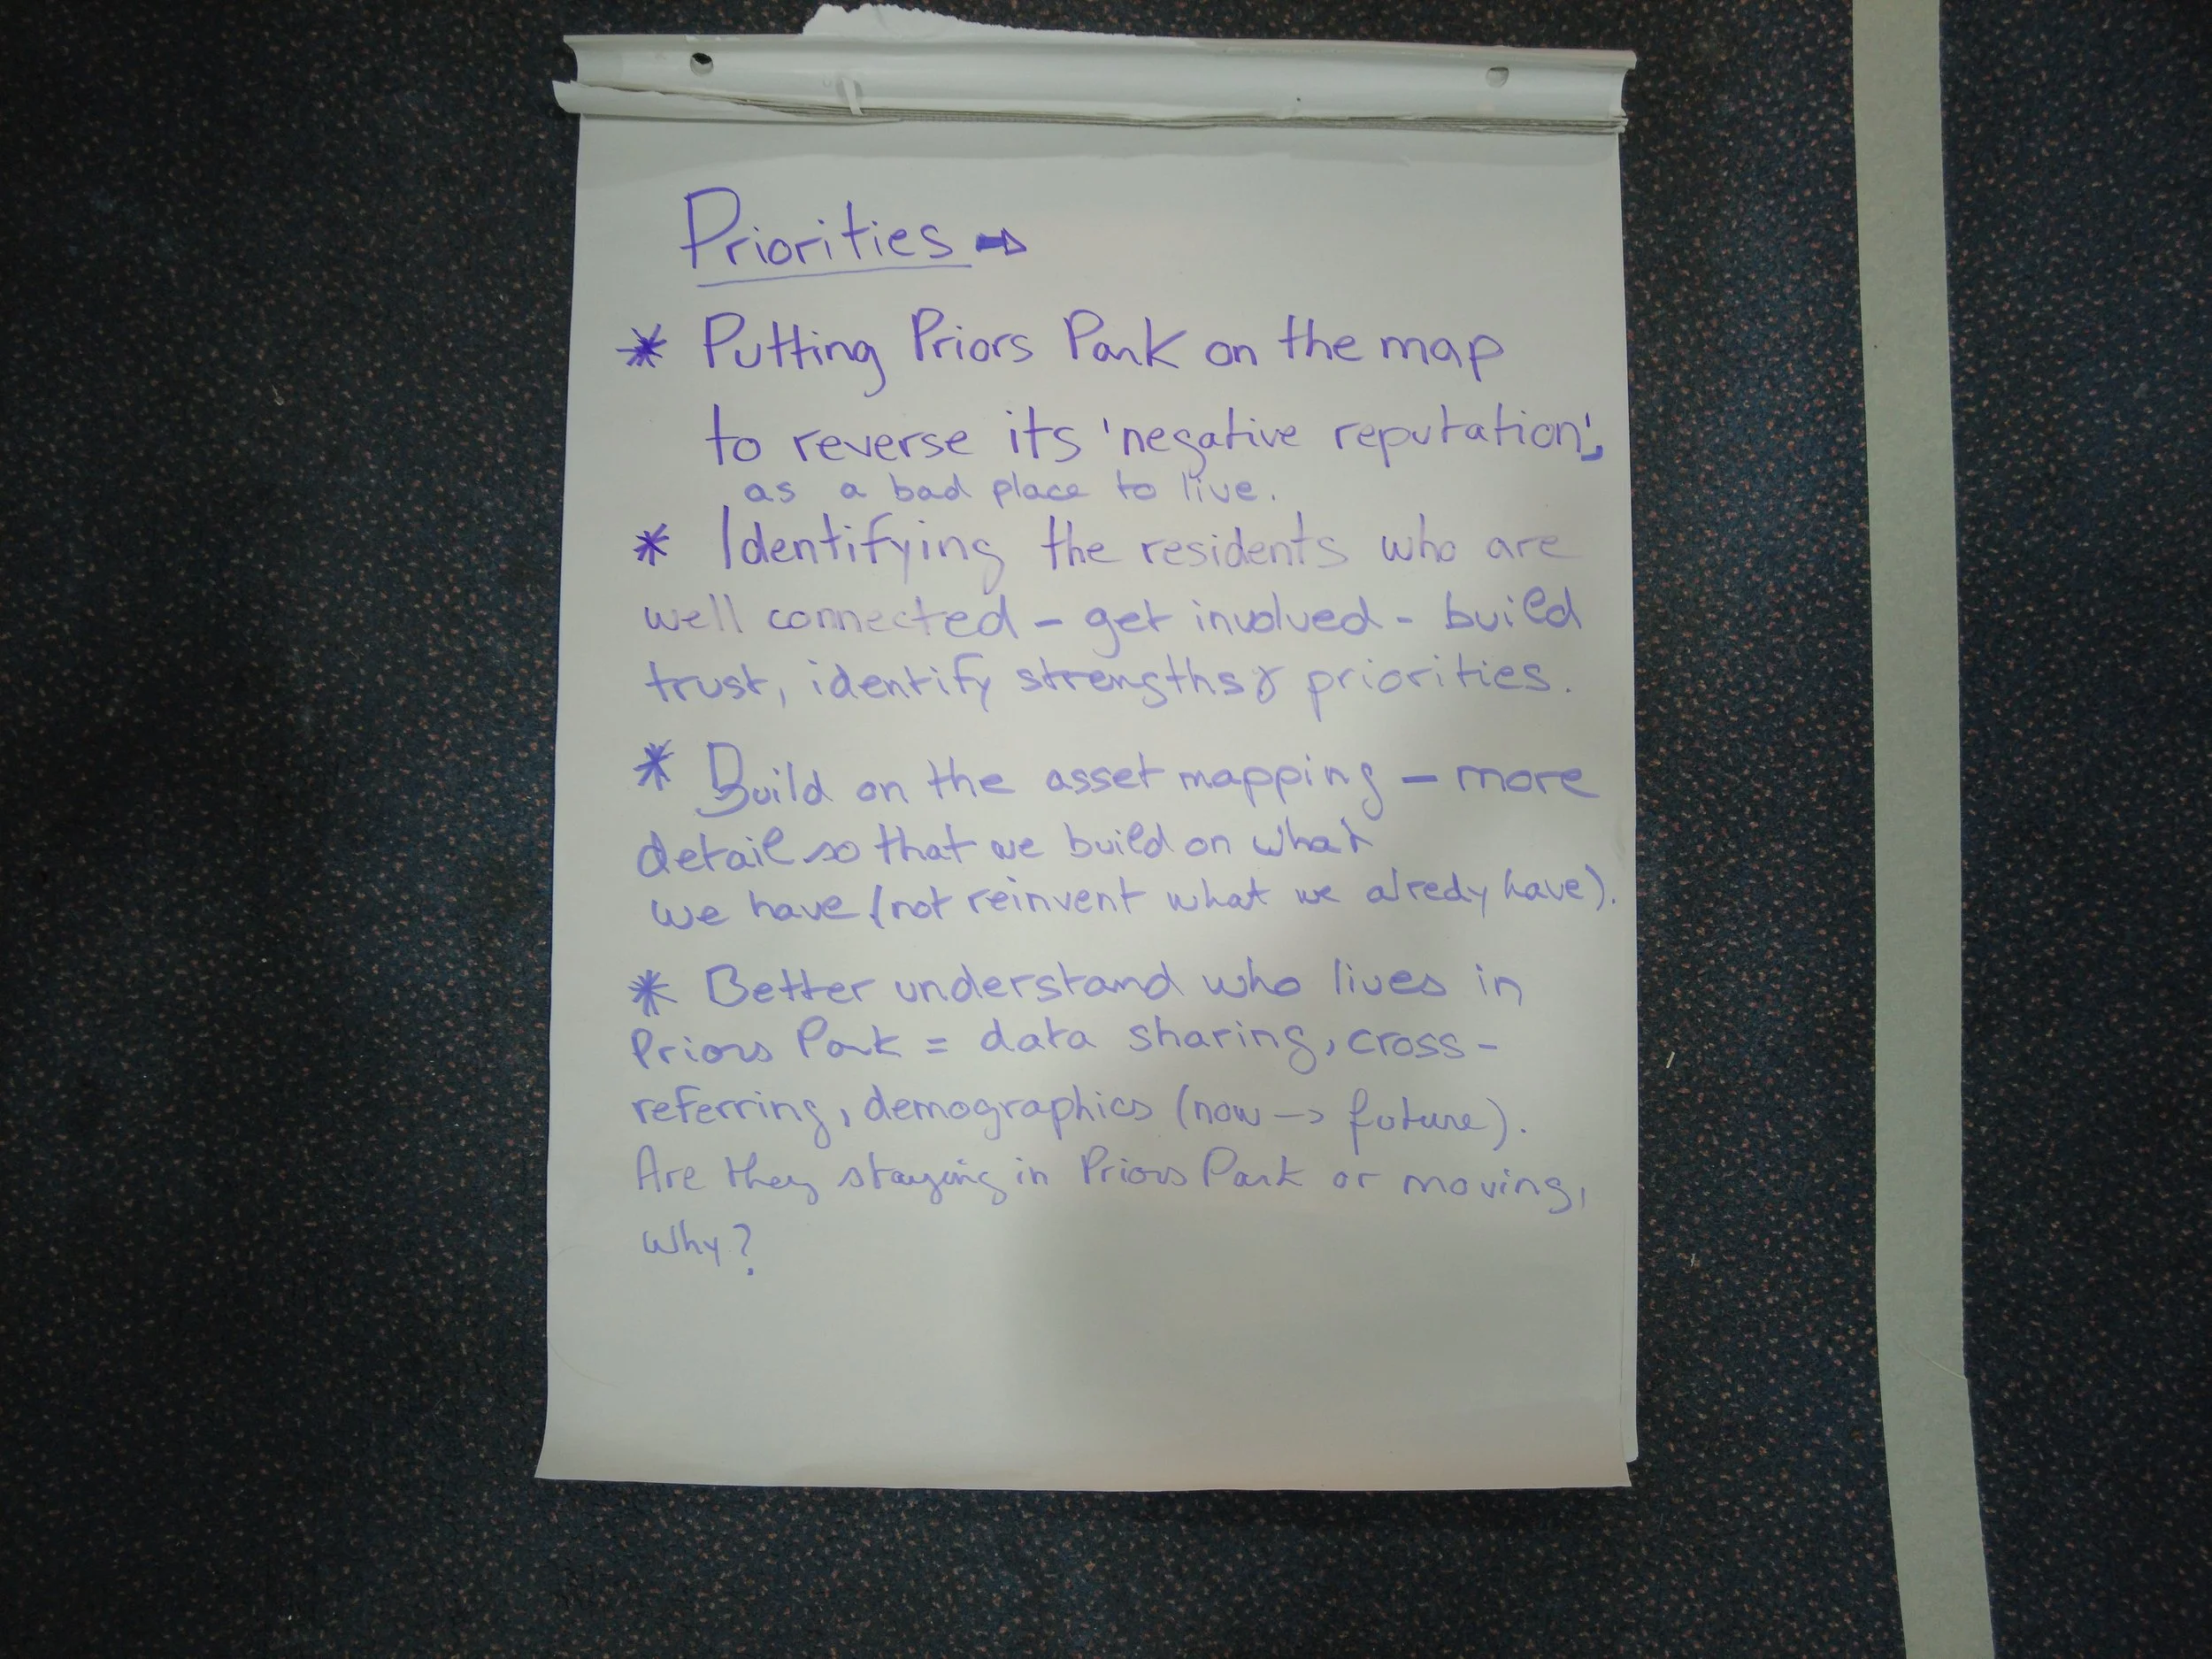 Priorities ➡
* Putting Priors Park on the map
to reverse its 'negative reputation',
as a bad place to live.
* Identifying the residents who are
well connected - get involved - build
trust, identify strengths & priorities.
* Build on the asset mapping - more
detail so that we build on what
we have (not reinvent what we alredy have).
* Better understand who lives in
Priors Park = data sharing, cross-
referring, demographics (now -> future).
Are they staying in Priors Park or moving,
why?